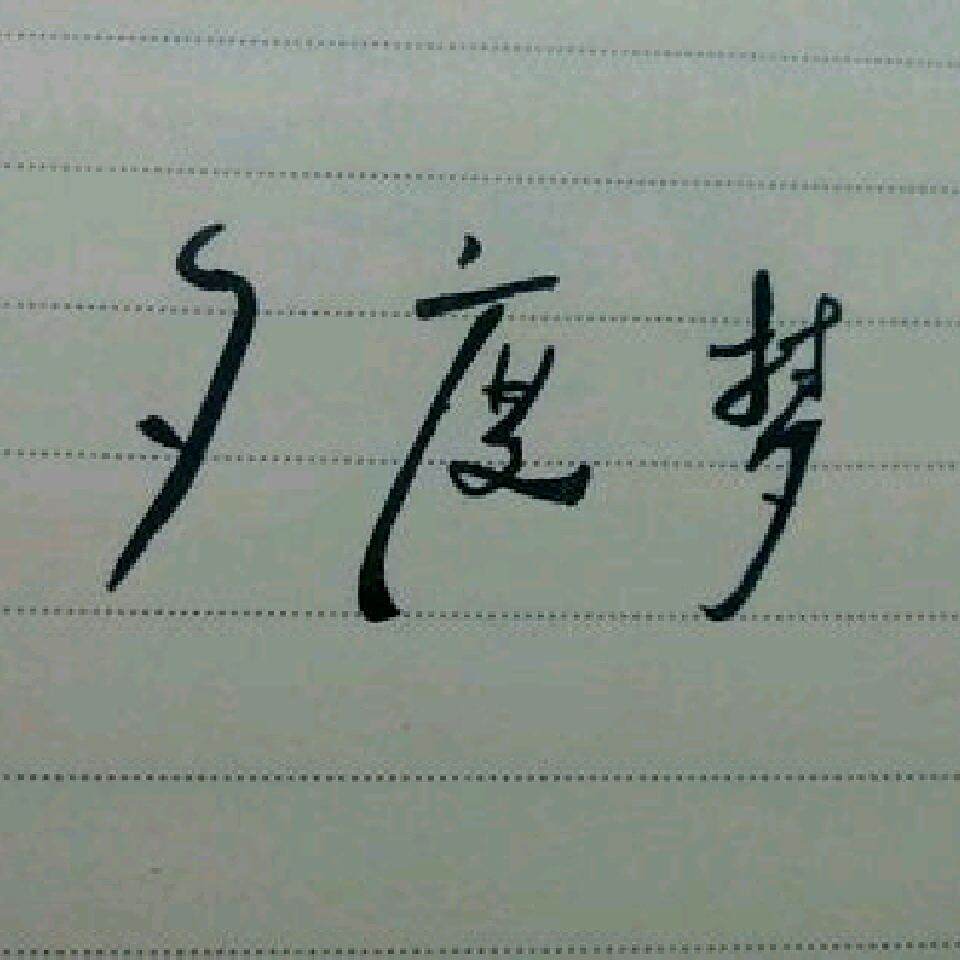 夕度梦